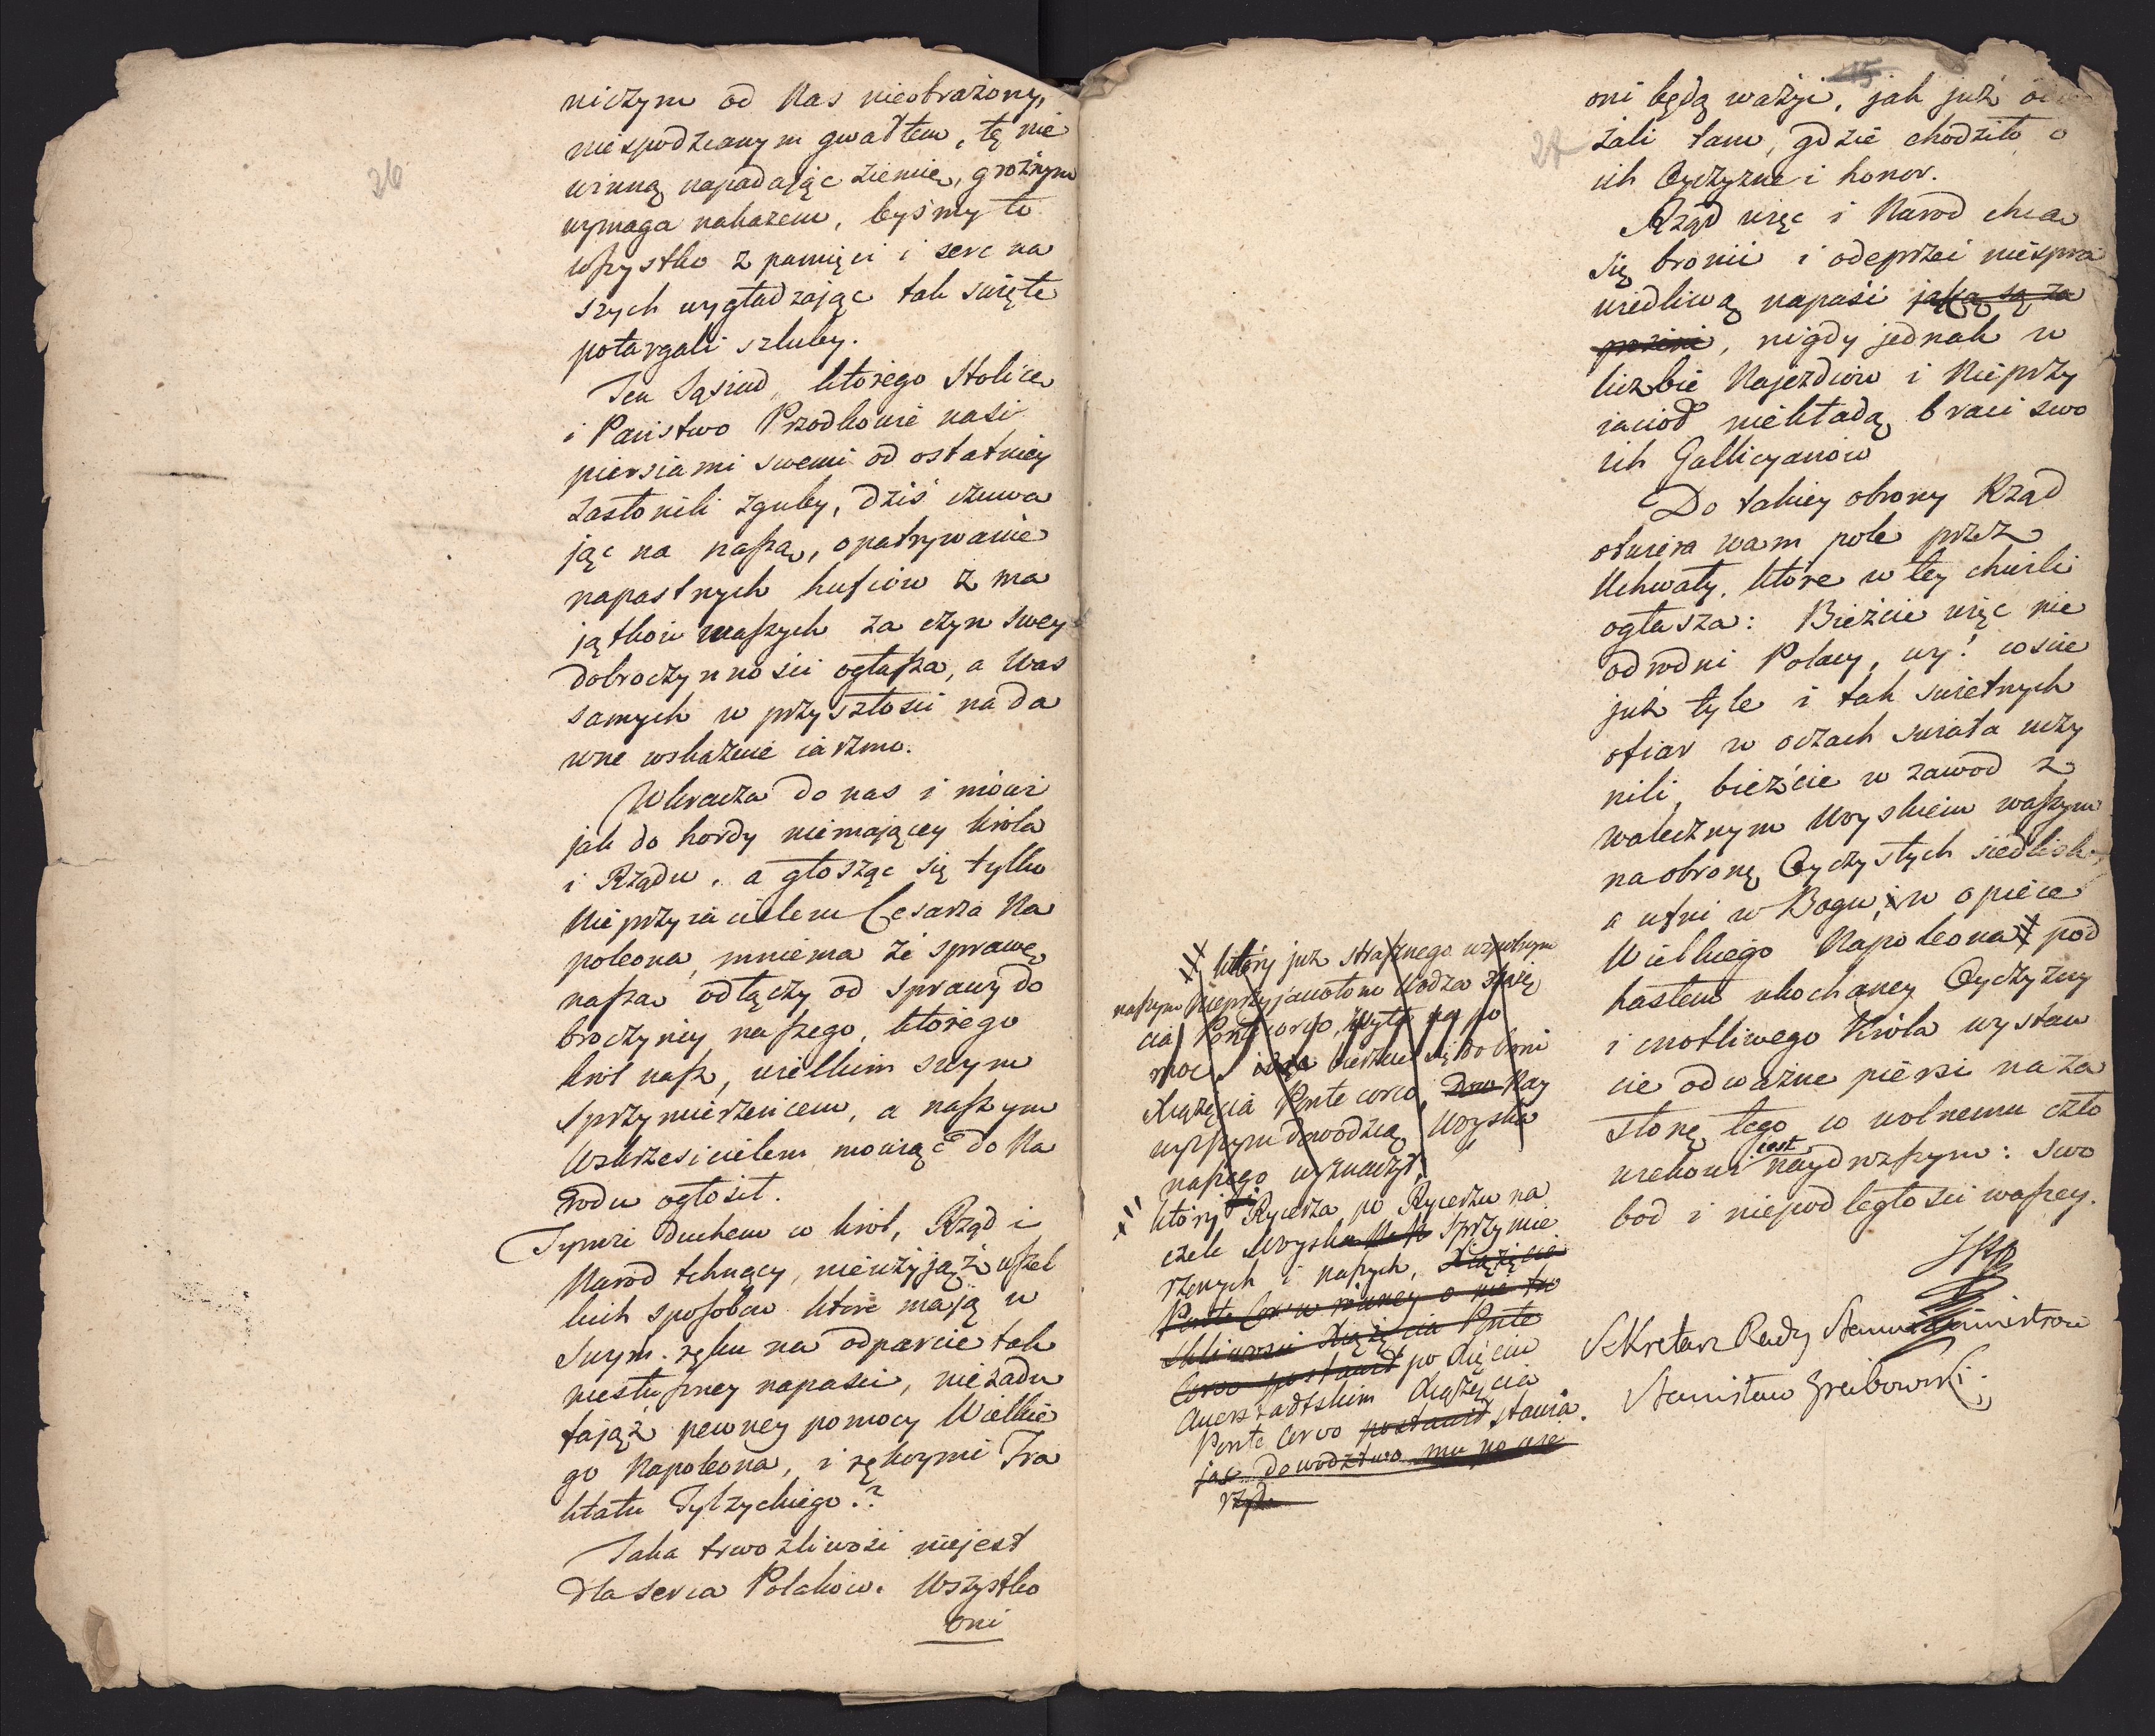 26
niczym od Nas nieobrażony,
niespodzianym gwałtem, tę nie
winną napadając ziemię, groźnym
wymaga nakazem, byśmy to
wszystko z pamięci i serc na
szych wygładzając tak święte
potargali szluby.
Ten Sąsiad, którego Stolice
i Państwo Przodkowie nasi
piersiami swemi od ostatniey
zasłonili zguby, dziś czuwa
jąc na naszą, opatrywanie
napastnych hufców z ma
jątków naszych za czyn swey
dobroczynności ogłasza, a Nas
samych w przyszłości na da
wne wskazuie iarzmo.
Wkracza do nas i mówi
jak do hordy niemającey króla
i Rządu, a głosząc się tylko
Nieprzyiacielem Cesarza Na
poleona, mniema że sprawę
naszą odłączy od sprawy do
broczyńcy naszego, którego
król nasz, wielkim swym
sprzymierzeńcem, a naszym
Wskrzesicielem mówiąc do Na
rodu ogłosił.
Tymże duchem co król, Rząd i
Naród tchnący, nieużyjąż wszel
kich sposobow które mają w
swym ręku na odparcie tak
niesłuszney napaści, nieżądu
fająż pewney pomocy Wielkie
go Napoleona, i rękoymi Tra
ktatu Tylzyckiego??
Taka trwożliwość niejest
dla serca Polaków. Wszystko
oni
15
27
oni będą ważyć, jak już
żali tam, gdzie chodziło o
ich Oyczyznę i honor.
Rząd więc i Narod chcą
się bronić i odeprzeć niespra
wiedliwą napaść jaką są za
, nigdy jednak w
liczbie Najezdców i Nieprzy
iaciół niekładą braci swo
ich Gallicyanów
Do takiey obrony Rząd
otwiera wam pole przez
Uchwały, które w tey chwili
ogłasza: Bieżcie więc nie
odrodni Polacy, wy! coście
już tyle i tak świetnych
ofiar w oczach świata uczy
nili, bieżcie w zawód z
walecznym Woyskiem waszym
na obronę Oyczystych siedlisk,
a ufni w Bogu, i w opiece
Wielkiego Napoleona # pod
hasłem ukochaney Oyczyzny
i cnotliwego Króla wystaw
cie odważne piersi na za
słonę tego, co wolnemu czło
wiekowi jest naydrozszym: swo
bod i niepodległości waszey.
Sekretarz Rady Stanu i Ministrow
Stanisław Grabowski
# który już strasznego wspolnym
naszym Nieprzyjaciołom Wodza Xiążę
cia Ponte corvo, po
moc
Xiążęcia Ponte corvo, Nay
wyższym dowodzcą Woyska
naszego wyznaczył,
który Rycerza po Rycerzu na
czele Woyska Sprzymie
rzonych i naszych, Xiążęcia
Xiążęcia Ponte
Corvo postawił po Xięciu
Auersztadtskim Xiążęcia
Ponte Corvo postawił stawia
jąc dowodztwo mu po